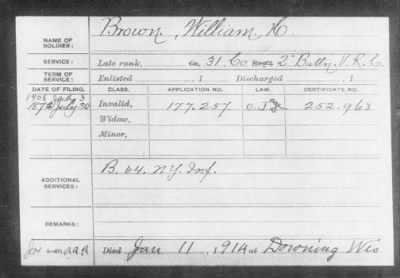 NAME OF SOLDIER: Brown, William H.
SERVICE: Late rank, Co. 31, Co 2" Batt'y. V. R. C.
TERM OF SERVICE: Enlisted , 1 Discharged , 1
DATE OF FILING. CLASS. APPLICATION NO. LAW. CERTIFICATE NO.
1908 July 3
1872 July 30 Invalid, 177.257 252.968
Widow,
Minor,
ADDITIONAL SERVICES: B. 64. N.Y. Inf.
REMARKS:
Died Jan 11, 1914 at Downing Wis